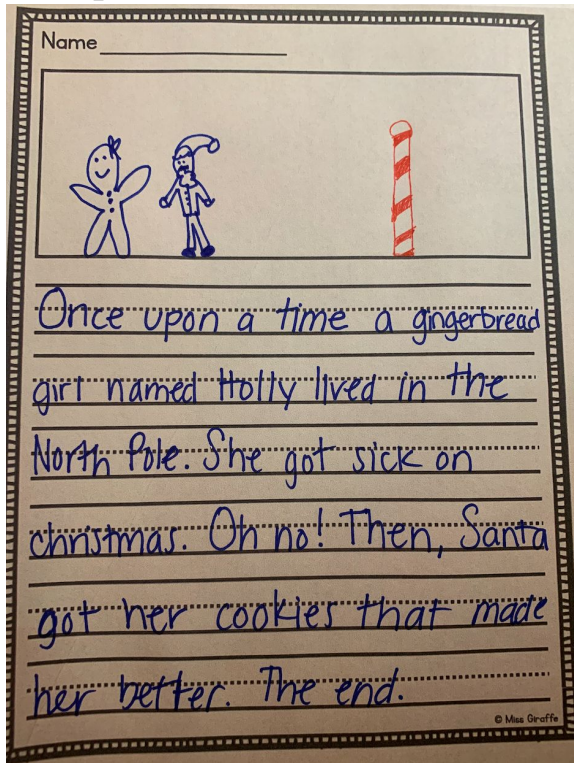 Name
Once upon a time a gingerbread
girl named Holly lived in the
North Pole. She got sick on
christmas. Oh no! Then, Santa
got her cookies that made
her better. The end.
© Miss Giraffe